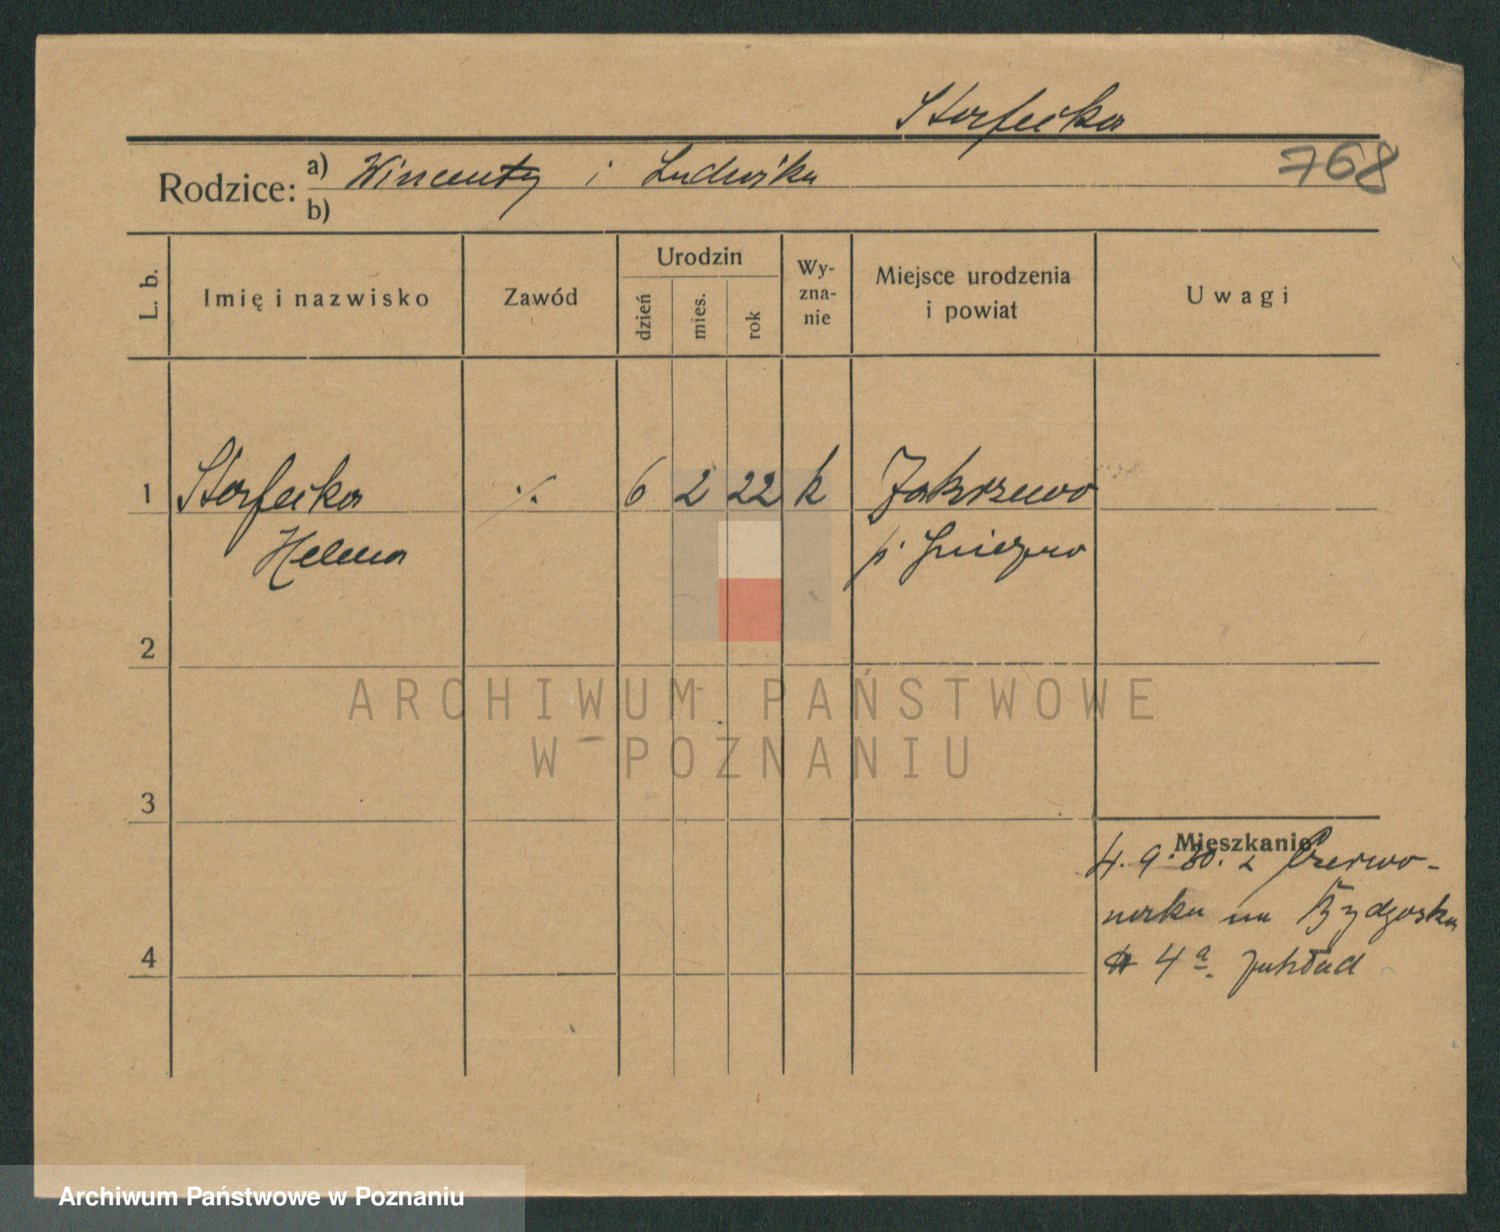 Storfecka
Rodzice: a) Wincenty i Ludwika
b)
768
L. b.
Imię i nazwisko
Zawód
Urodzin
dzień
mies.
rok
Wy-
zna-
nie
Miejsce urodzenia
i powiat
Uwagi
1 Storfecka ·/. 6 2 22 k Zakrzewo
Helena p. Gniezno
2
ARCHIWUM PAŃSTWOWE
W POZNANIU
3
Mieszkanie
4. 9. 30. z Czerwo-
naka na Bydgoska
4a. zakład
4
Archiwum Państwowe w Poznaniu